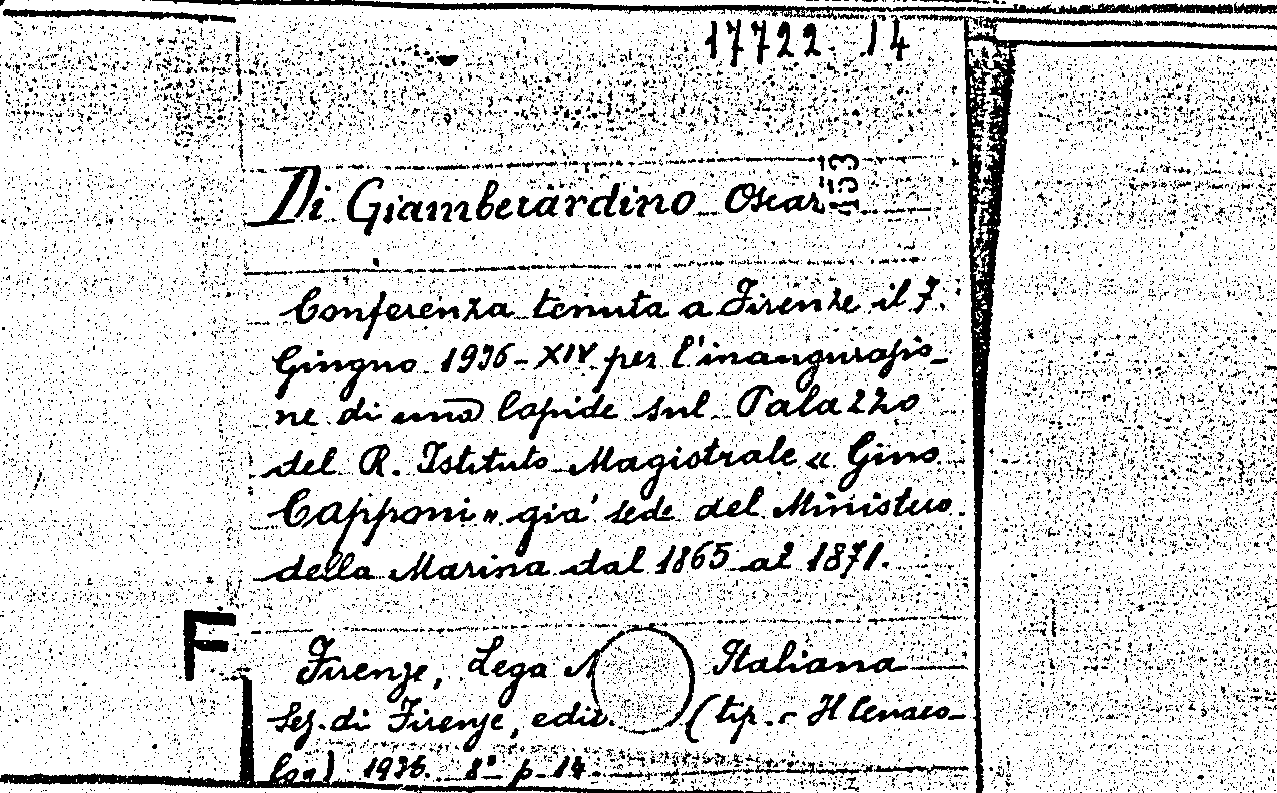 17722. 14
Di Giamberardino Oscar
153
Conferenza tenuta a Firenze il 7.
Giugno 1936-XIV per l'inaugurazio-
ne di una lapide sul Palazzo
del R. Istituto Magistrale « Gino
Capponi » già sede del Ministero
della Marina dal 1865 al 1871.
F
Firenze, Lega Italiana
Sez. di Firenze, edit. (tip. Il Cenaco-
lo) 1936. 8° p. 14.